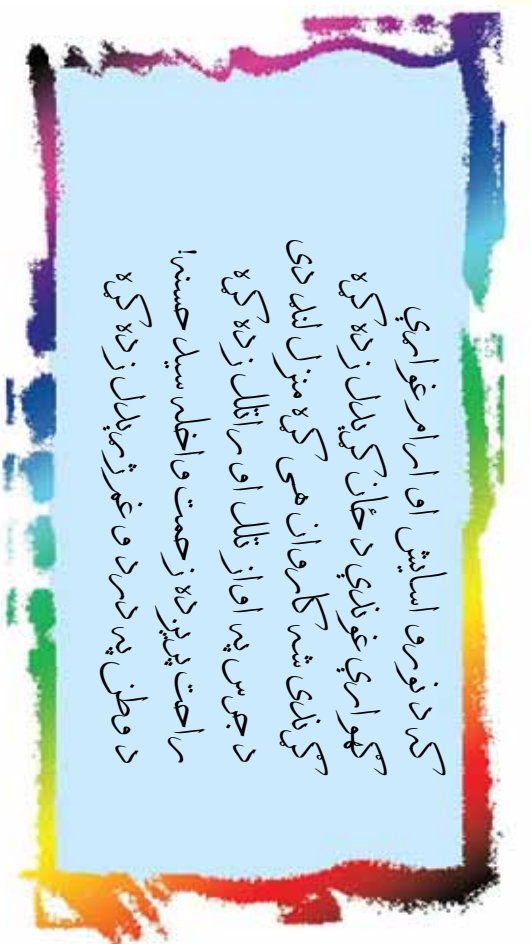 که د نورو اسایش او ارام غواړي
ګهوارې غوندې د ځان کړېدل زده کړه
ګړندی شه کاروان هی کړه منزل لنډ دی
د جرس په اواز تلل او راتلل زده کړه
راحت پرېږده زحمت واخله سید حسنه!
د وطن په درد و غم ژړېدل زده کړه